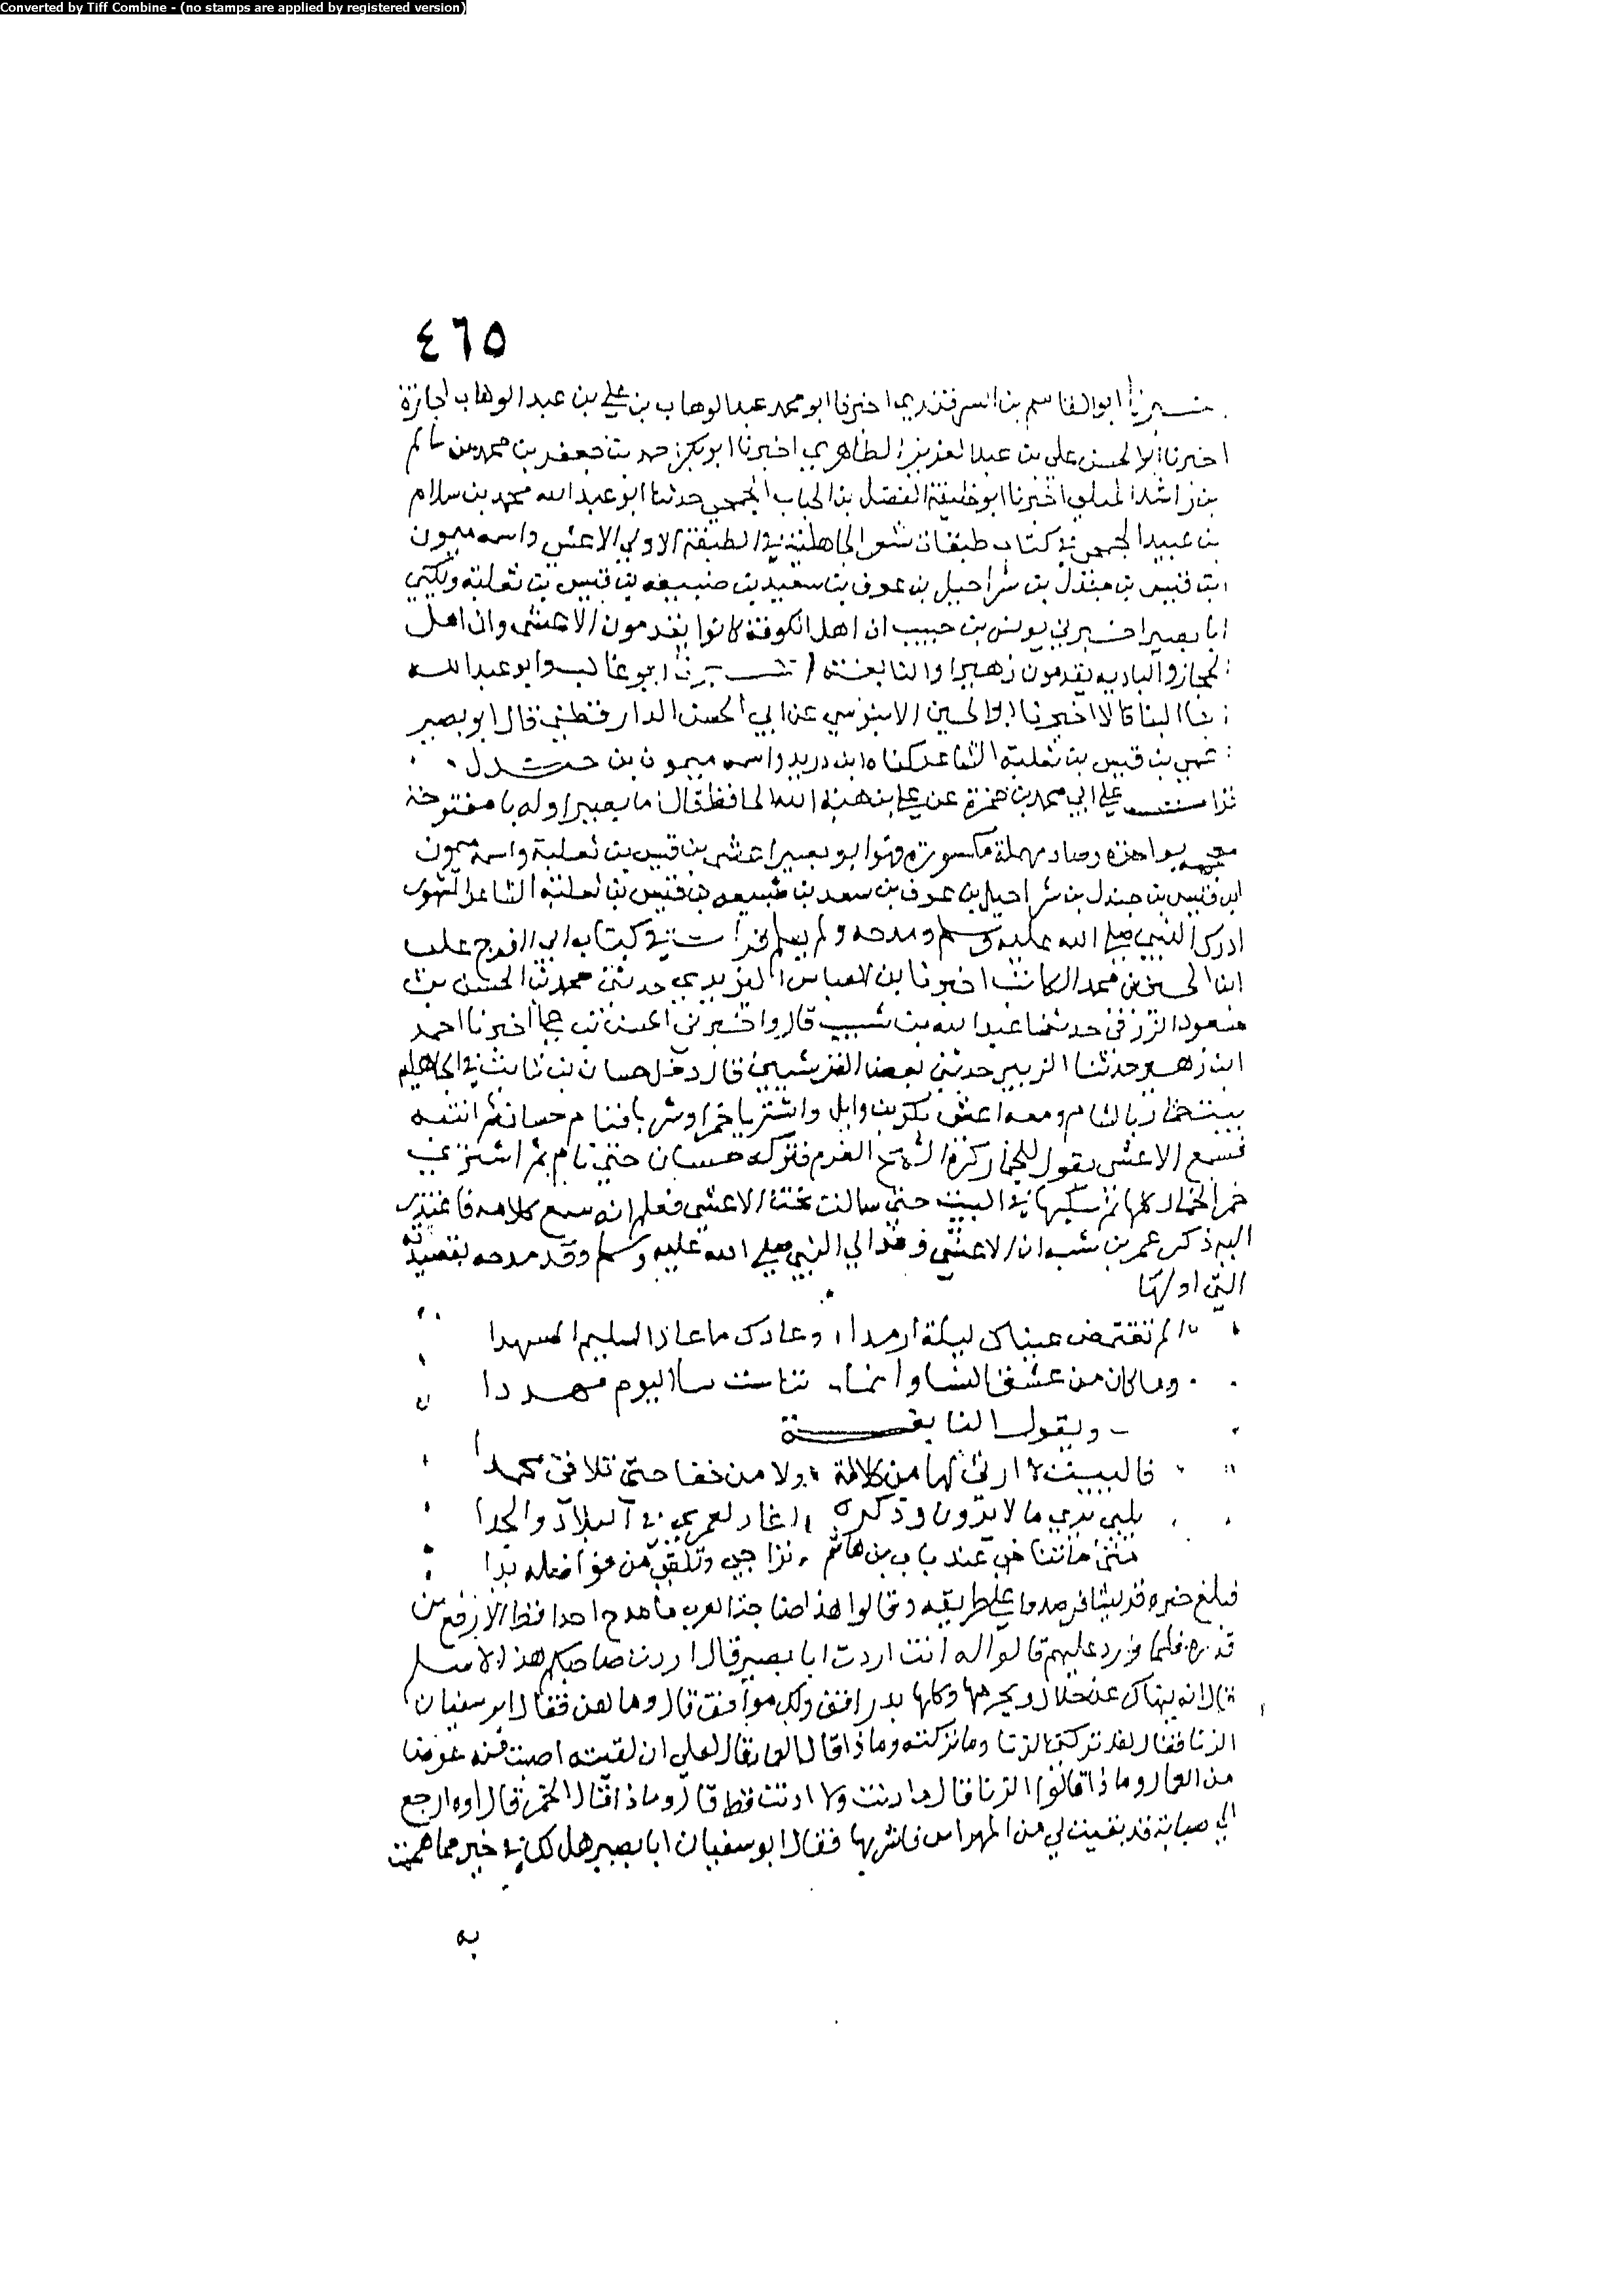 Converted by Tiff Combine - (no stamps are applied by registered version)
٤٦٥
ابو القاسم بن السمرقندي اخبرنا ابو محمد عبد الوهاب بن علي بن عبد الوهاب اجازة
اخبرنا ابو الحسن علي بن عبد العزيز الطاهري اخبرنا ابو بكر احمد بن جعفر بن محمد بن سالم
بن راشد الختلي اخبرنا ابو خليفة الفضل بن الحباب الجمحي حدثنا ابو عبد الله محمد بن سلام
بن عبيد الجمحي في كتاب طبقات شعرا الجاهلية في الطبقة الاولي الاعشي واسمه ميمون
ابن قيس بن جندل بن شراحيل بن عوف بن سعيد بن ضبيعه بن قيس بن ثعلبة ويكني
ابا بصير اخبرني يونس بن حبيب ان اهل الكوفة كانوا يقدمون الاعشي وان اهل
الحجاز والباديه يقدمون زهيرا والنابغة اخبرنا ابو غالب وابو عبد الله
ابنا البنا قالا اخبرنا ابو الحسين الابنوسي عن ابي الحسن الدارقطني قال ابو بصير
اعشي بن قيس بن ثعلبة الشاعر كناه ابن دريد واسمه ميمون بن جندل
علي ابي محمد بن حمزة عن علي بن هبة الله الحافظ قال اما بصير اوله با مفتوحة
معجمه بواحدة وصاد مهملة مكسورة فهو ابو بصير اعشي بن قيس بن ثعلبة واسمه ميمون
ابن قيس بن جندل بن شراحيل بن عوف بن سعد بن ضبيعه بن قيس بن ثعلبة الشاعر المشهور
ادرك النبي صلي الله عليه وسلم ومدحه ولم يسلم قرات في كتاب ابي الفرج علي
ابن الحسين بن محمد الكاتب اخبرنا ابن العباس اليزيدي حدثني محمد بن الحسن بن
مسعود الزرقي حدثنا عبد الله بن شبيب قال واخبرني الحسن بن اخبرنا احمد
ابن زهير حدثنا الزبير حدثني بعض القرشيين قال دخل حسان بن ثابت في الجاهلية
بيت خمار بالشام ومعه اعشي بكر بن وايل واشتريا خمرا وشربا فنام حسان ثم انتبه
فسمع الاعشي يقول للخمار كره الشيخ الغرم فتركه حسان حتي نام ثم اشتري
خمر الخمار كلها ثم سكبها في البيت حتي سالت تحت الاعشي فعلم انه سمع كلامه فاعتذر
اليه ذكر عمر بن شبه ان الاعشي وفد الي النبي صلي الله عليه وسلم وقد مدحه بقصيدته
التي اولها
الم تغتمض عيناك ليلة ارمدا وعادك ما عاد السليم المسهدا
وما كان من عشق النسا وانما تناسيت اليوم مهددا
ويقول لناقته
فاليت لا ارثي لها من كلالة ولا من حفا حتي تلاقي محمدا
نبي يري ما لا ترون وذكره اغار لعمري في البلاد وانجدا
متي ما تناخي عند باب بن هاشم تراحي وتلقي من فواضله يدا
فبلغ خبره قريشا فرصدوه علي طريقه وقالوا هذا صناجة العرب ما مدح احدا قط الا رفع من
قدره فلما ورد عليهم قالوا له انت اردت ابا بصير قال اردت صاحبكم هذا لاسلم
قال انه ينهاك عن خلال ويحرمها وكلها بك رافق ولك موافق قال وما هن فقال ابو سفيان
الزنا فقال لقد تركني الزنا وما تركته وماذا قال القمار قال لعلي ان لقيته اصبت منه عوضا
من القمار وماذا قالوا الربا قال ما دنت ولا ادنت قط قال وماذا قال الخمر قال اوه ارجع
الي صبابة قد بقيت لي من المهراس فاشربها فقال ابو سفيان ابا بصير هل لك في خير مما هممت
به